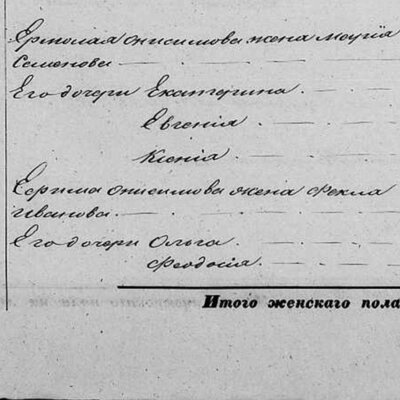 Ермолая Онисимова жена Марія
Семенова
Его дочери Екатерина
Евгенія
Ксенія
Ефима Онисимова жена Фекла
Иванова
Его дочери Ольга
Феодосія
Итого женскаго пола